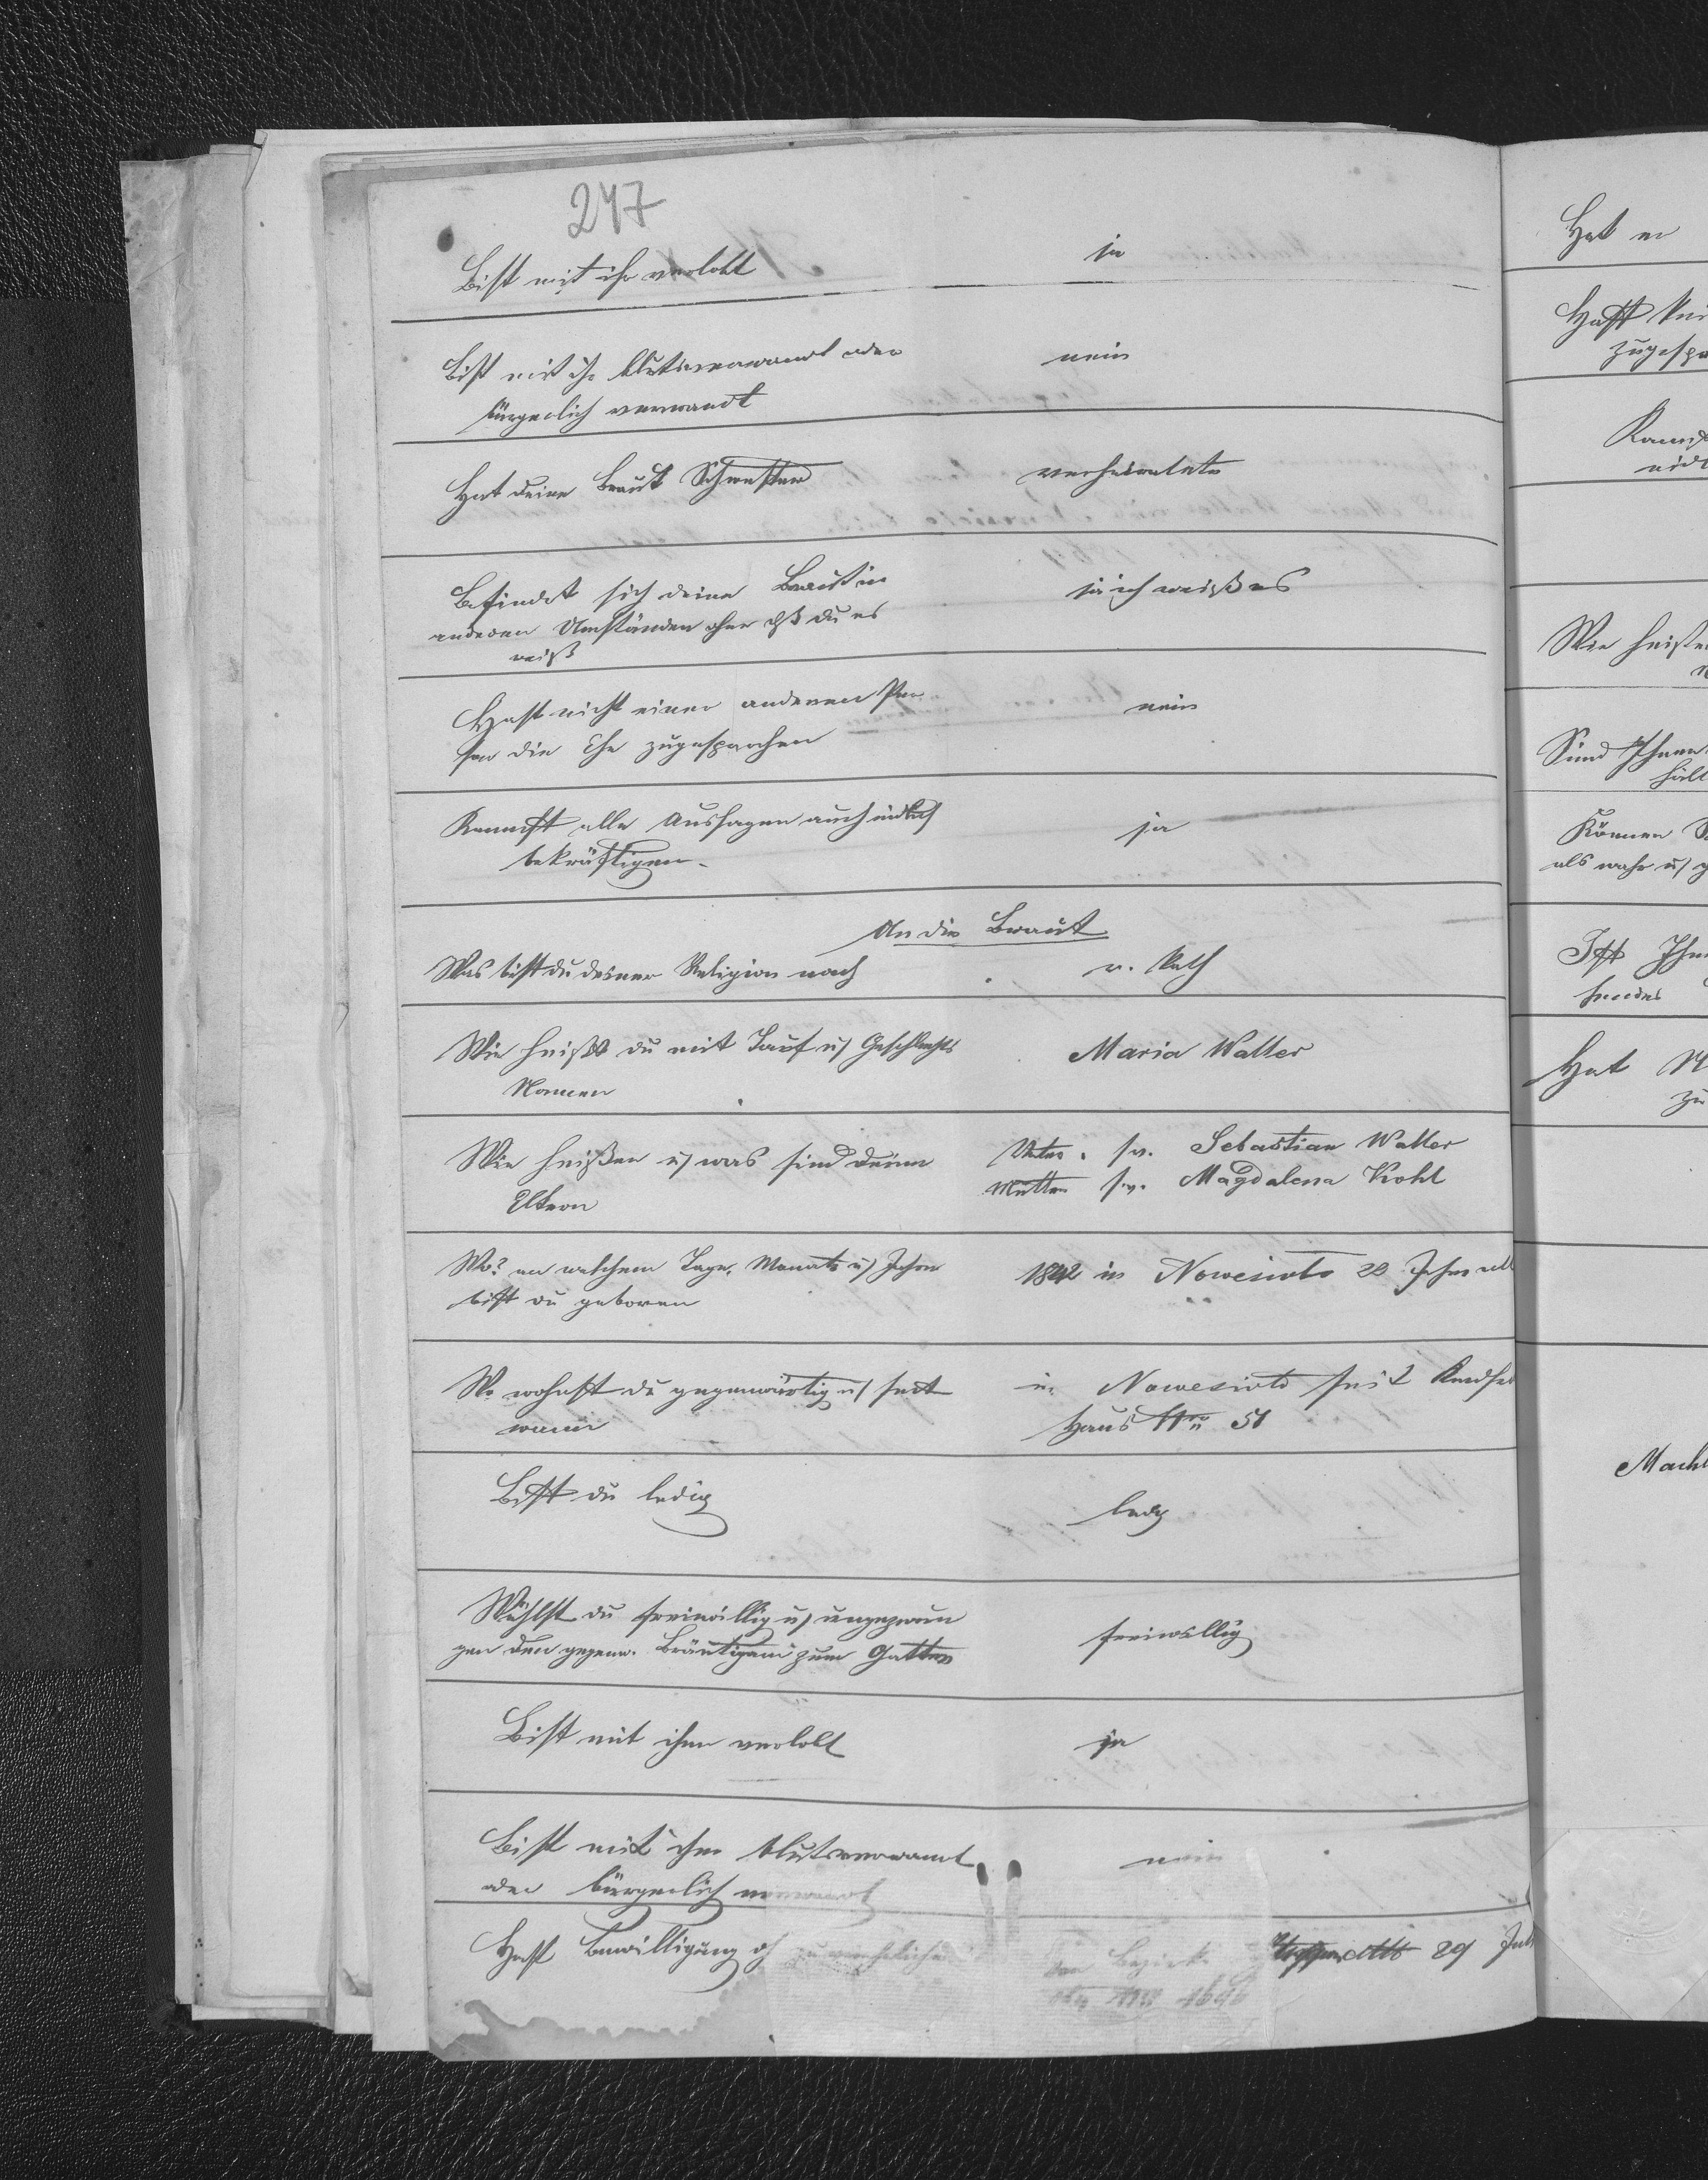 247
Bist mit ihr verlobt
ja
Bist mit ihr blutsverwandt oder
bürgerlich verwandt
nein
Hat deine Braut Schwestern
verheiratete
Befindet sich deine Braut in
anderen Umständen ohne daß du es
weißt
ja ich weiß es
Hast nicht einer anderen Per
son die Ehe zugesprochen
nein
Kannst alle Aussagen auch eidlich
bekräftigen
ja
An die Braut
Was bist du deiner Religion nach
r. kath
Wie heißt du mit Tauf u Geschlechts
Namen
Maria Walter
Wie heißen u was sind deine
Eltern
Vater Sebastian Walter
Mutter Magdalena Kohl
Wo? an welchem Tage, Monate u Jahre
bist du geboren
1842 in Nowesioto Jahr alt
Wo wohnst du gegenwärtig u seit
wann
in Nowesioto seit
Haus Nro 51
Bist du ledig
ledig
Wählst du freiwillig u ungezwun
gen den gegenw. Bräutigam zum Gatten
freiwillig
Bist mit ihm verlobt
ja
Bist mit ihm blutsverwandt
oder bürgerlich verwandt
nein
Hast Bewilligung zu verehelichen
Bezirks
29
Hat er
Hast
zugesp
nicht
Wie heißen
Sind Ihnen
Können S
als wahr u g
Ist Ihn
Hat
zu
Mach